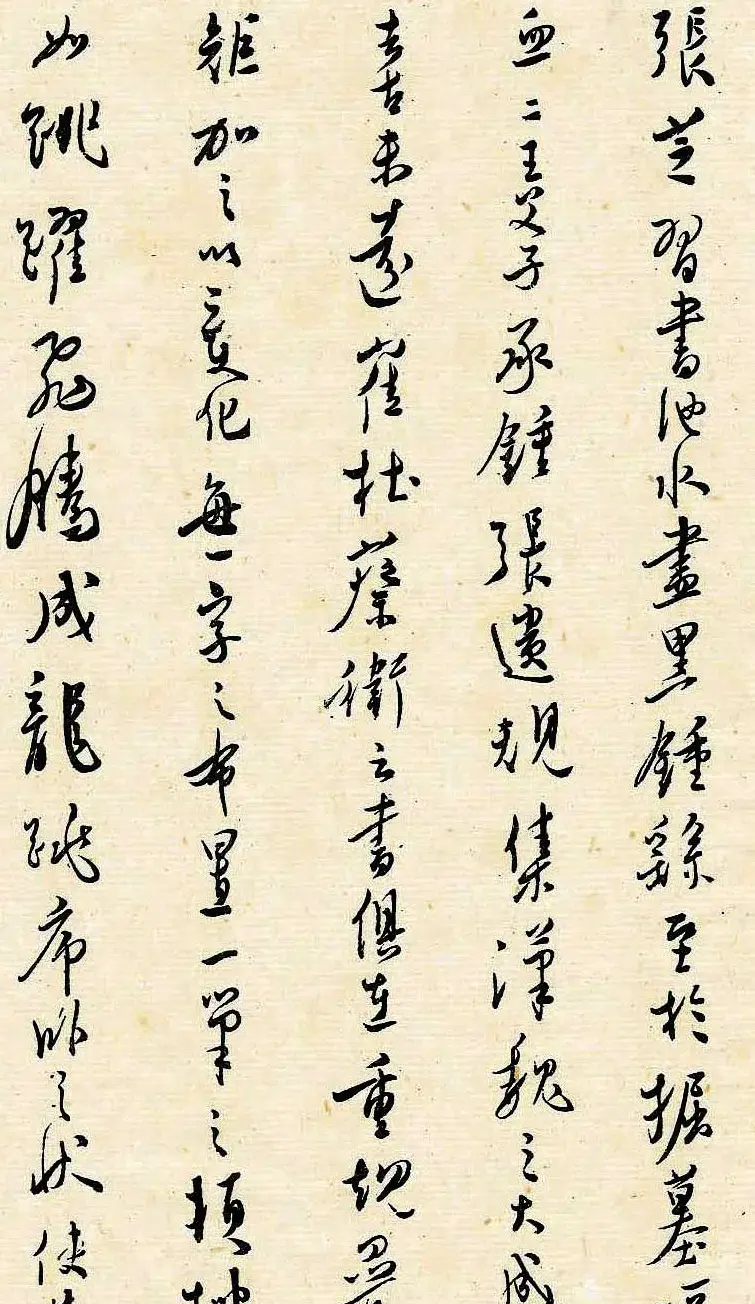 張芝習書池水盡黑鍾繇至於掘墓
血二王父子承鍾張遺規集漢魏之大成
去古未遠崔杜蔡衛之書俱在重規疊
矩加之以變化每一字之布置一筆之頓挫
如跳躍飛騰成龍跳虎臥之狀使